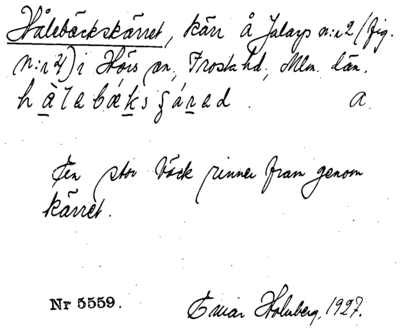 Hålebäckskärret, kärr å Jularps n:r 2 (fig.
n:r 4) i Hörs sn, Frosta hd, Mlm. län.
a.
En stor bäck rinner fram genom
kärret.
Nr 5559. Einar Holmberg, 1927.